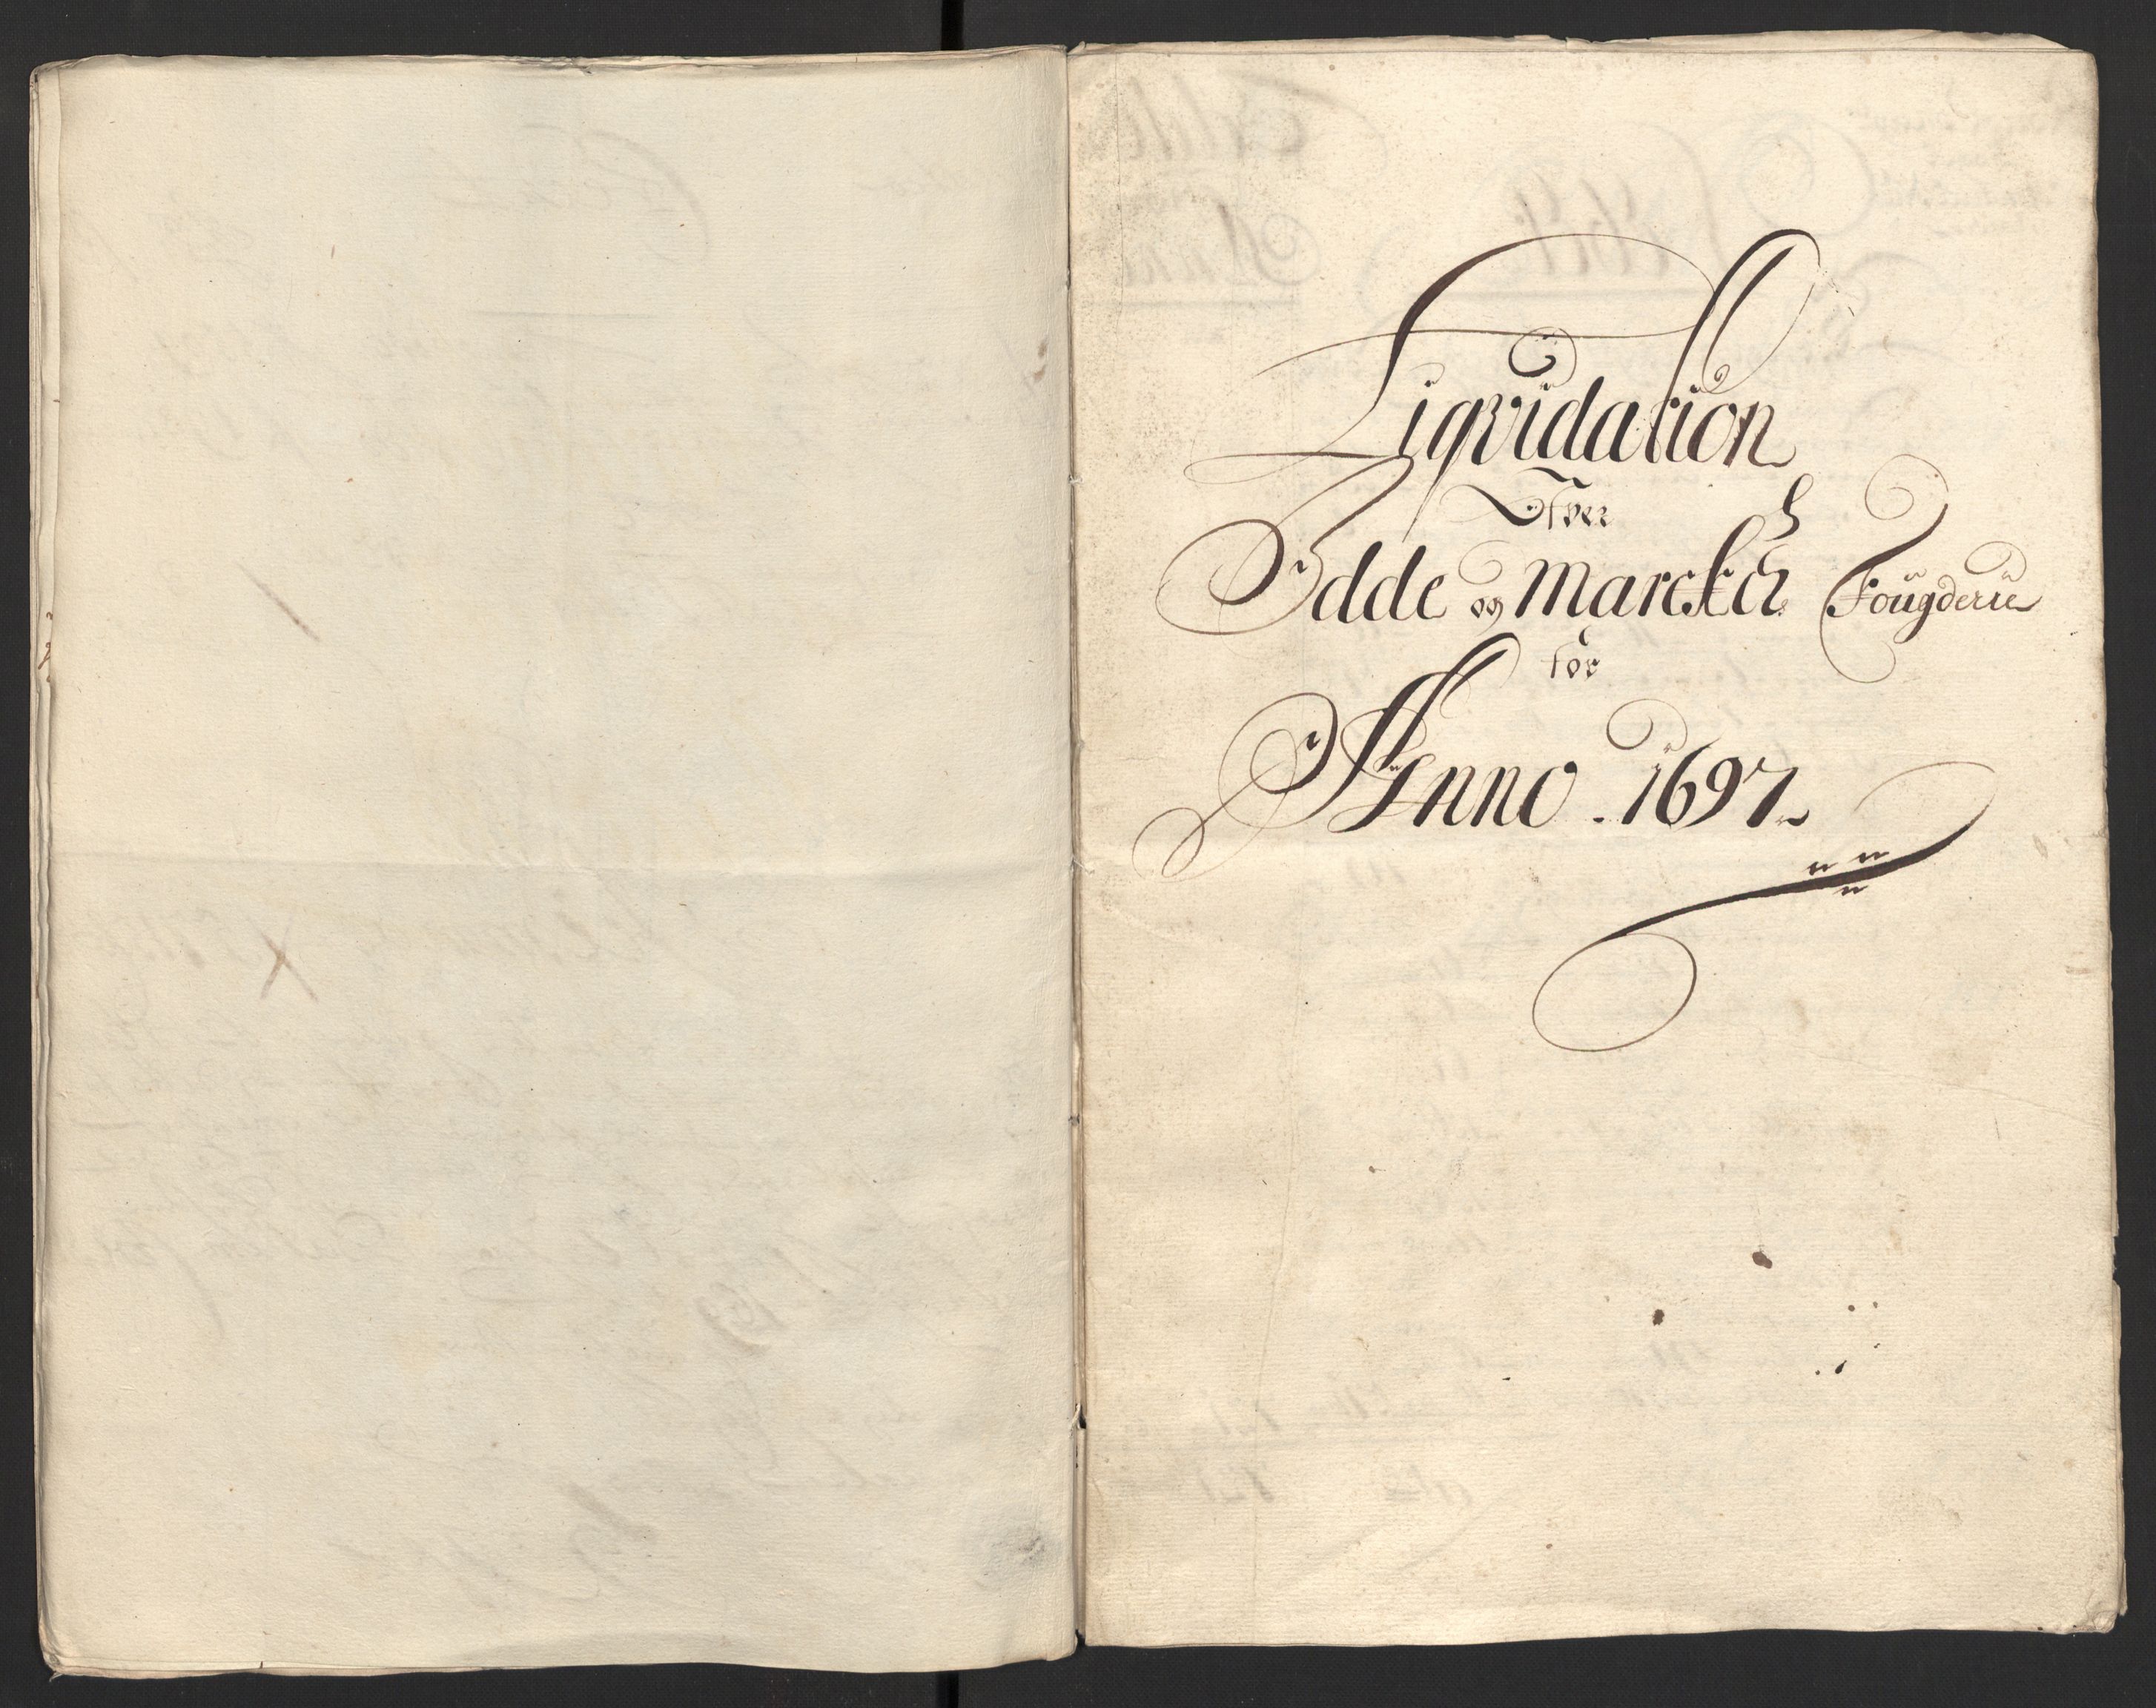 Liqvidation
Ofver
Idde og Marcker Fougderie
for
Anno . 1697